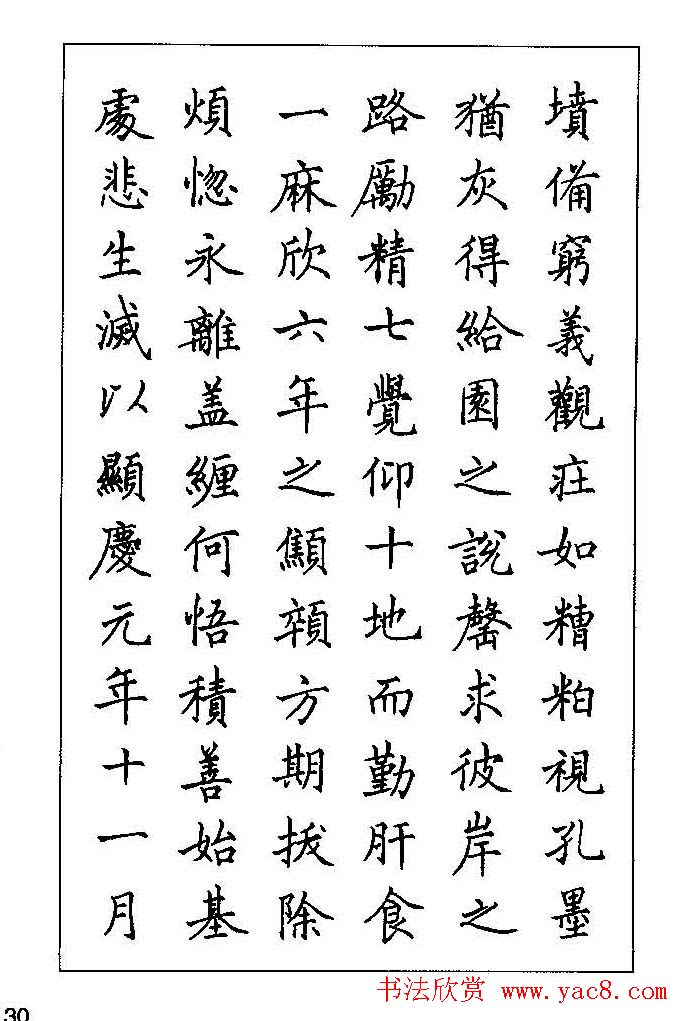 墳備窮義觀㽵如糟粕視孔墨
猶灰得給園之說罄求彼岸之
路勵精七覺仰十地而勤肝食
一麻欣六年之顦顇方期拔除
煩惚永離盖纒何悟積善始基
處悲生滅以顯慶元年十一月
书法欣赏 www.yac8.com
30